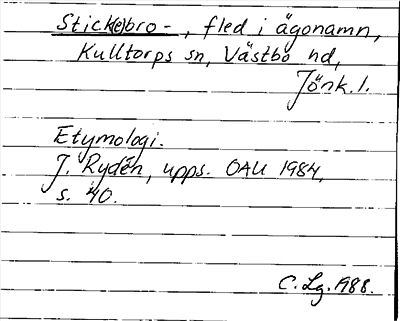 Stick(e)bro-, fled i ägonamn,
Kulltorps sn, Västbo hd,
Jönk. l.
Etymologi.
J. Rydén, upps. OAU 1984,
s. 40.
C. Lg. 1988.